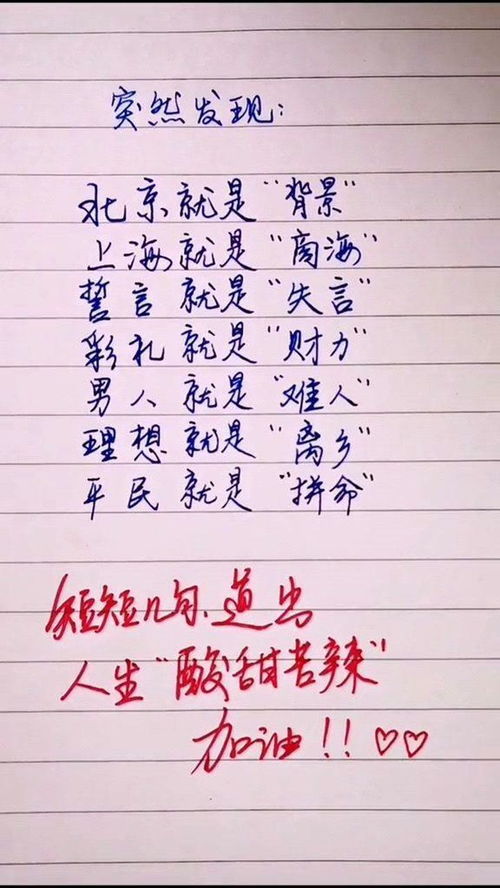 突然发现:
北京就是“背景”
上海就是“商海”
誓言就是“失言”
彩礼就是“财力”
男人就是“难人”
理想就是“离乡”
平民就是“拼命”
短短几句、道出
人生“酸甜苦辣”
加油!!♡♡